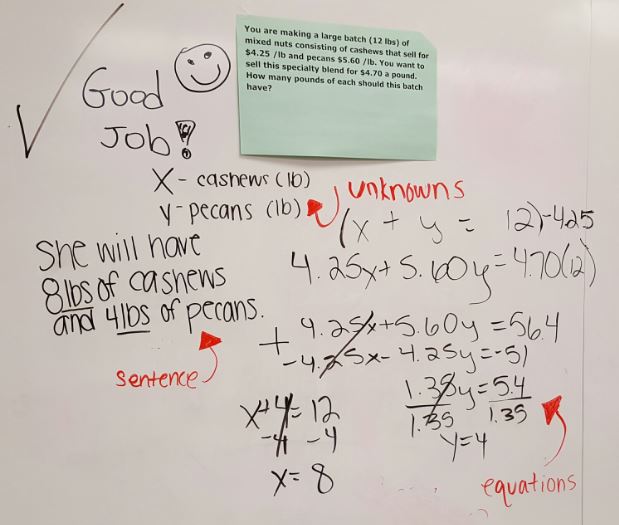 You are making a large batch (12 lbs) of
mixed nuts consisting of cashews that sell for
$4.25 /lb and pecans $5.60 /lb. You want to
sell this specialty blend for $4.70 a pound.
How many pounds of each should this batch
have?
Good
Job!
X - cashews (lb)
y - pecans (lb)
unknowns
She will have
8lbs of cashews
and 4lbs of pecans.
sentence
(x + y = 12)-4.25
4.25x + 5.60y = 4.70(12)
4.25x + 5.60y = 56.4
+ -4.25x - 4.25y = -51
1.35y = 5.4
1.35 1.35
y = 4
x + 4 = 12
-4 -4
x = 8
equations